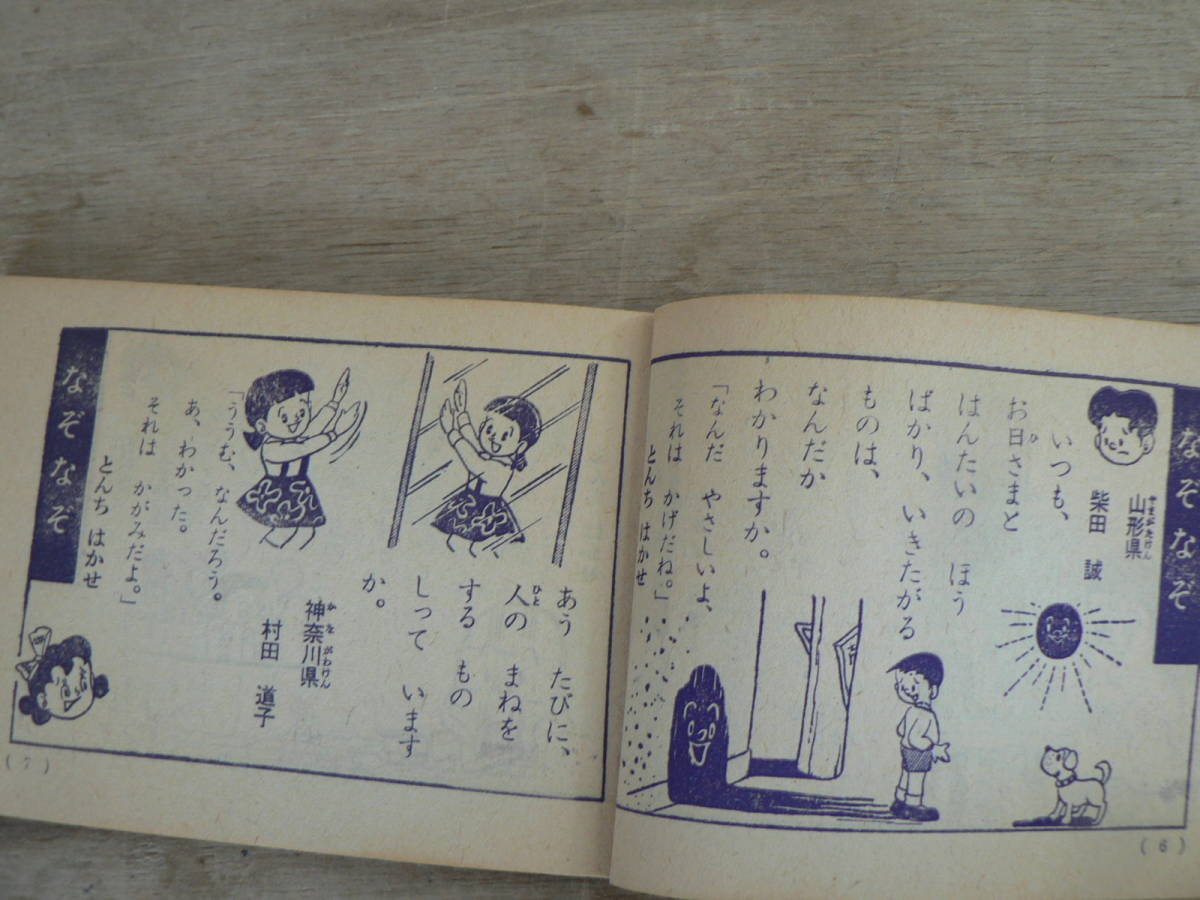 なぞなぞ
山形県
やまがたけん
柴田 誠
いつも、
お日さまと
ひ
はんたいの ほう
ばかり、いきたがる
ものは、
なんだか
わかりますか。
「なんだ やさしいよ、
それは かげだね。」
とんち はかせ
(6)
あう たびに、
人の まねを
ひと
する もの
しって います
か。
神奈川県
かながわけん
村田 道子
「ううむ、なんだろう。
あ、わかった。
それは かがみだよ。」
とんち はかせ
なぞなぞ
(7)